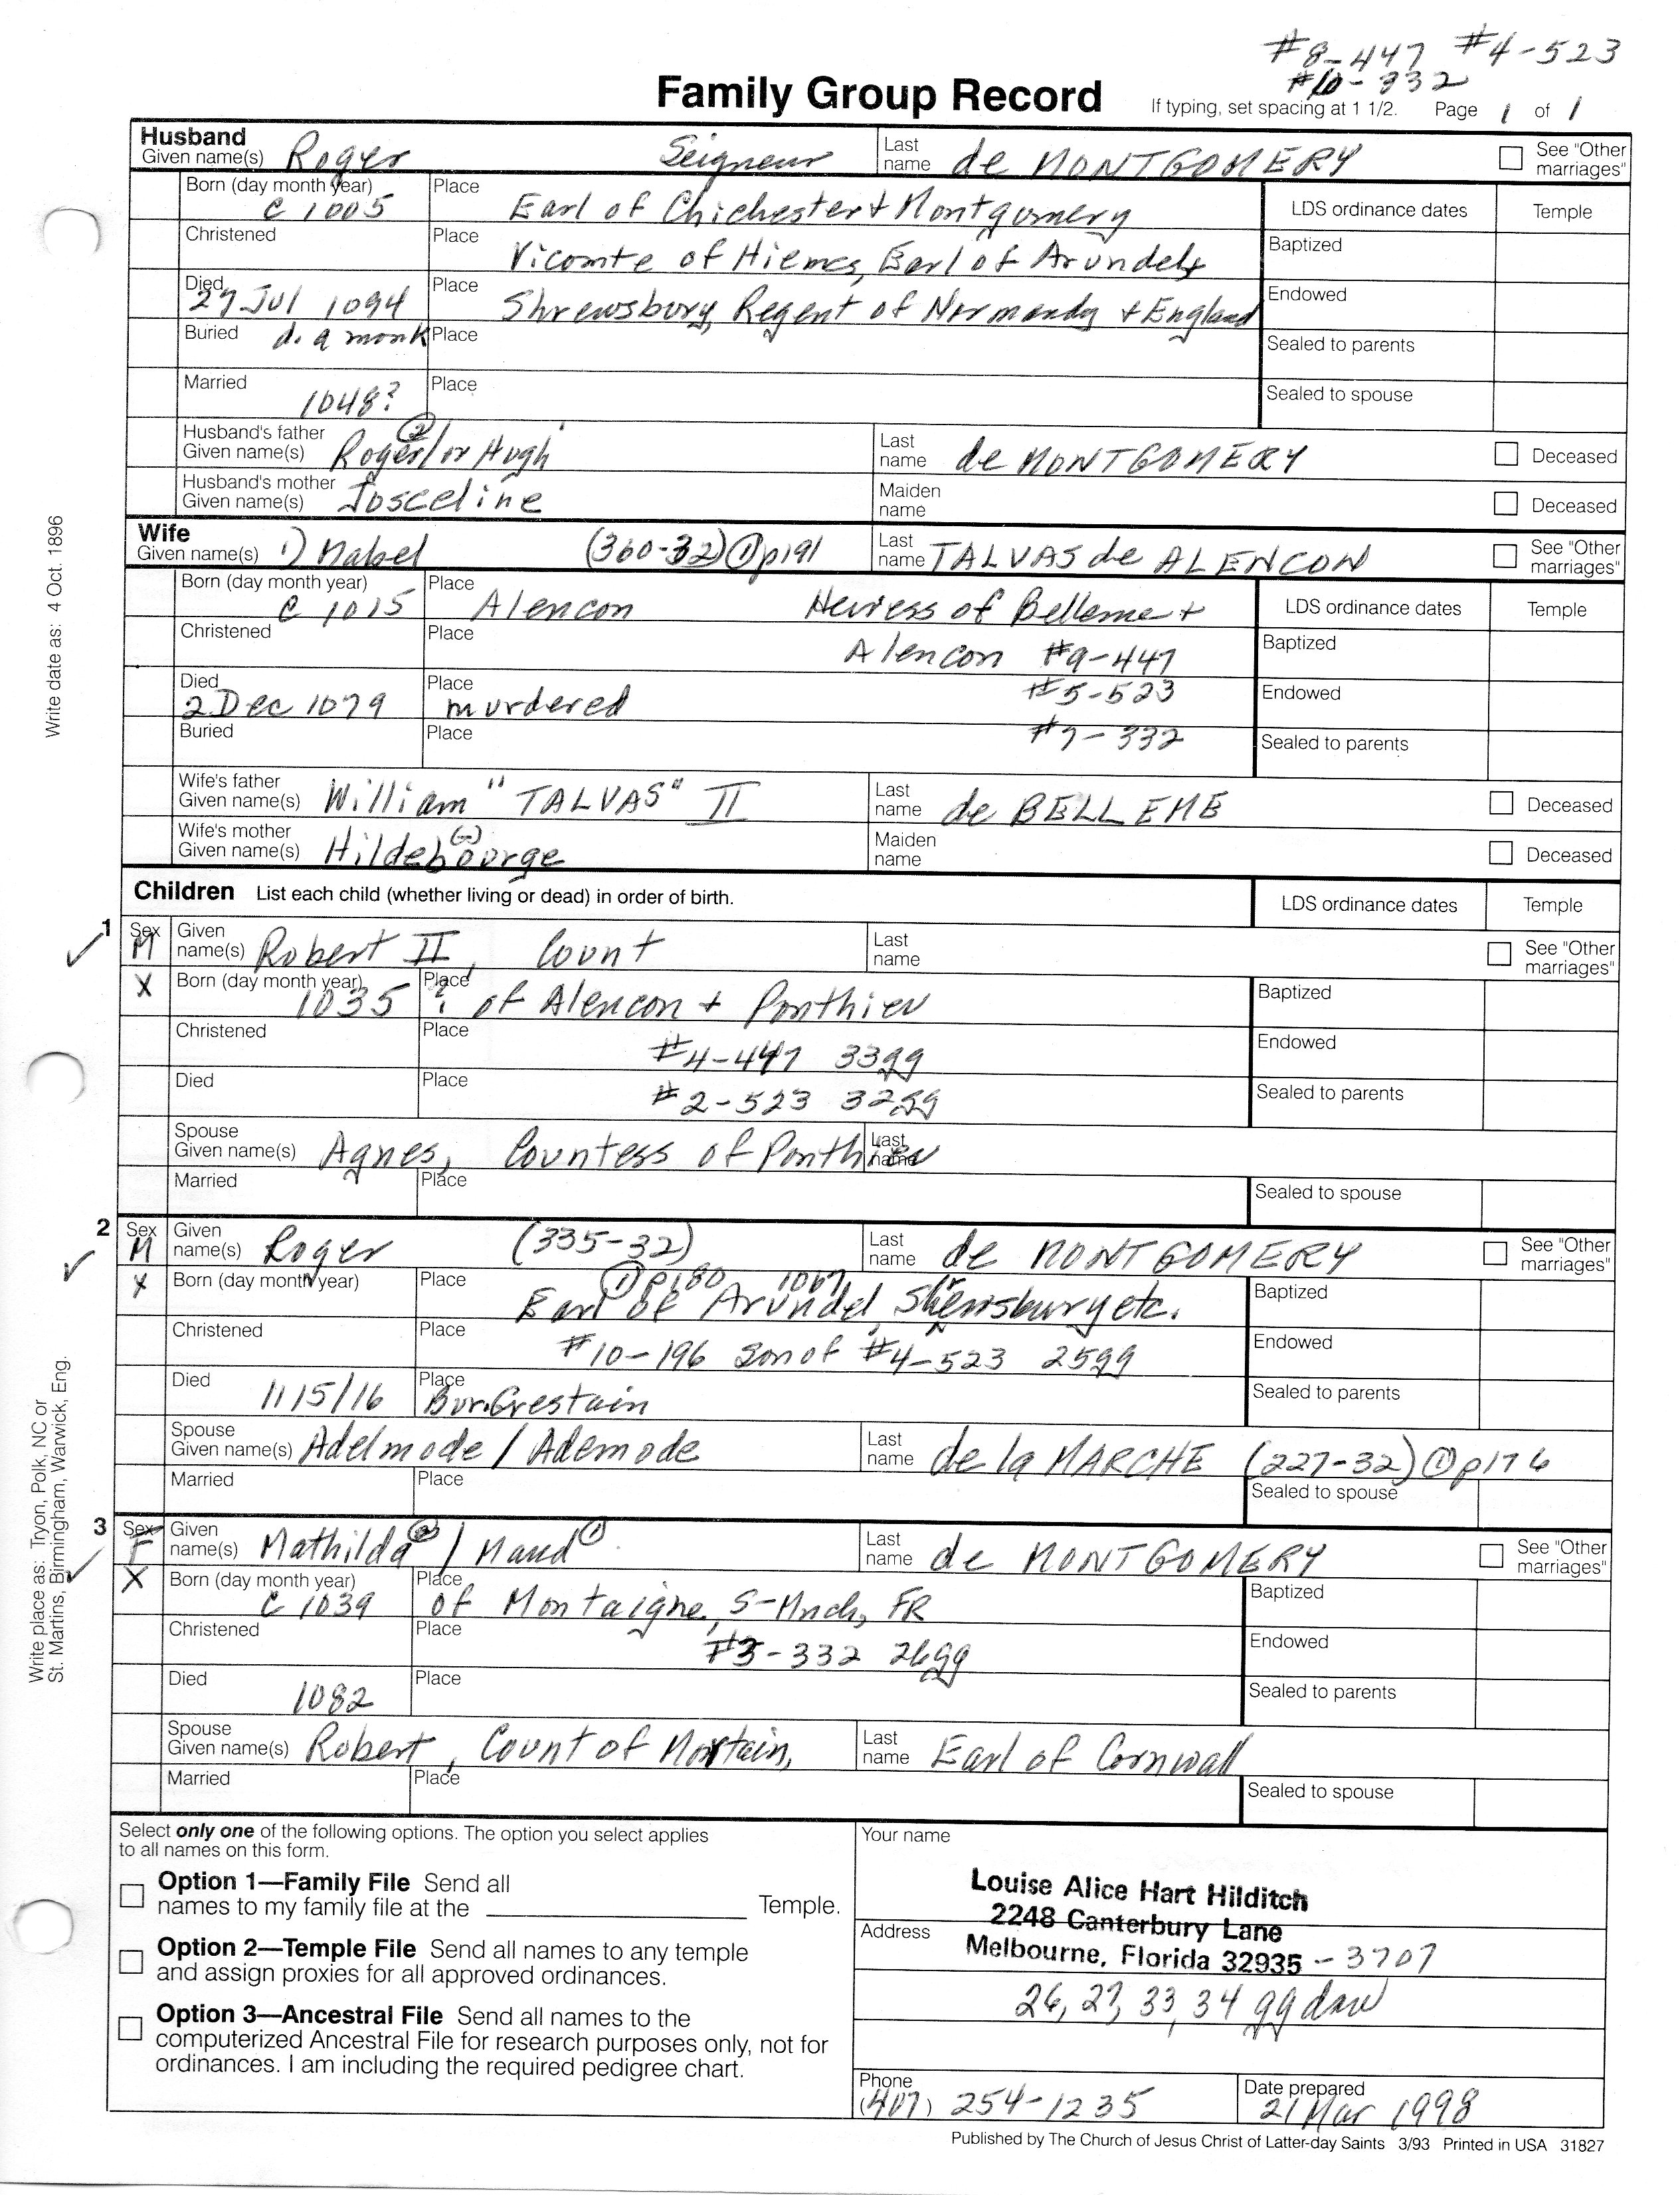 #8-447 #4-523
#10-332
Family Group Record
If typing, set spacing at 1 1/2. Page 1 of 1
Husband
Given name(s) Roger Seigneur Last name de MONTGOMERY See "Other marriages"
Born (day month year) c 1005 Place Earl of Chichester + Montgomery LDS ordinance dates Temple
Christened Place Vicomte of Hiemes, Earl of Arundel + Baptized
Died 27 Jul 1094 Place Shrewsbury, Regent of Normandy + England Endowed
Buried d. a monk Place Sealed to parents
Married 1048? Place Sealed to spouse
Husband's father Given name(s) Roger (2) / or Hugh Last name de MONTGOMERY Deceased
Husband's mother Given name(s) Josceline Maiden name Deceased
Wife
Given name(s) 1) Mabel (360-32) (1) p191 Last name TALVAS de ALENCON See "Other marriages"
Born (day month year) c 1015 Place Alencon Heiress of Belleme + LDS ordinance dates Temple
Christened Place Alencon #9-447 Baptized
Died 2 Dec 1079 Place murdered #5-523 Endowed
Buried Place #7-332 Sealed to parents
Wife's father Given name(s) William "TALVAS" II Last name de BELLEME Deceased
Wife's mother Given name(s) Hildebourge Maiden name Deceased
Children List each child (whether living or dead) in order of birth. LDS ordinance dates Temple
1 Sex M Given name(s) Robert II, Count Last name See "Other marriages"
X Born (day month year) 1035 Place ? of Alencon + Ponthieu Baptized
Christened Place #4-447 33gg Endowed
Died Place #2-523 32gg Sealed to parents
Spouse Given name(s) Agnes, Countess of Ponthieu Last name
Married Place Sealed to spouse
2 Sex M Given name(s) Roger (335-32) Last name de MONTGOMERY See "Other marriages"
X Born (day month year) Place (1) p180 1067 Baptized
Earl of Arundel, Shrewsbury etc.
Christened Place #10-196 son of #4-523 25gg Endowed
Died 1115/16 Place Bur. Grestain Sealed to parents
Spouse Given name(s) Adelmode / Ademode Last name de la MARCHE (227-32) (1) p176
Married Place Sealed to spouse
3 Sex F Given name(s) Mathilda (2) / Maud (1) Last name de MONTGOMERY See "Other marriages"
X Born (day month year) c 1039 Place of Montaigne, S-Mnch, FR Baptized
Christened Place #3-332 26gg Endowed
Died 1082 Place Sealed to parents
Spouse Given name(s) Robert, Count of Mortain, Last name Earl of Cornwall
Married Place Sealed to spouse
Select only one of the following options. The option you select applies
to all names on this form.
Option 1—Family File Send all
names to my family file at the Temple.
Option 2—Temple File Send all names to any temple
and assign proxies for all approved ordinances.
Option 3—Ancestral File Send all names to the
computerized Ancestral File for research purposes only, not for
ordinances. I am including the required pedigree chart.
Your name
Louise Alice Hart Hilditch
2248 Canterbury Lane
Address
Melbourne, Florida 32935 - 3707
26, 27, 33, 34 gg dau
Phone (407) 254-1235
Date prepared 21 Mar 1998
Published by The Church of Jesus Christ of Latter-day Saints 3/93 Printed in USA 31827
Write date as: 4 Oct. 1896
Write place as: Tryon, Polk, NC or
St. Martins, Birmingham, Warwick, Eng.